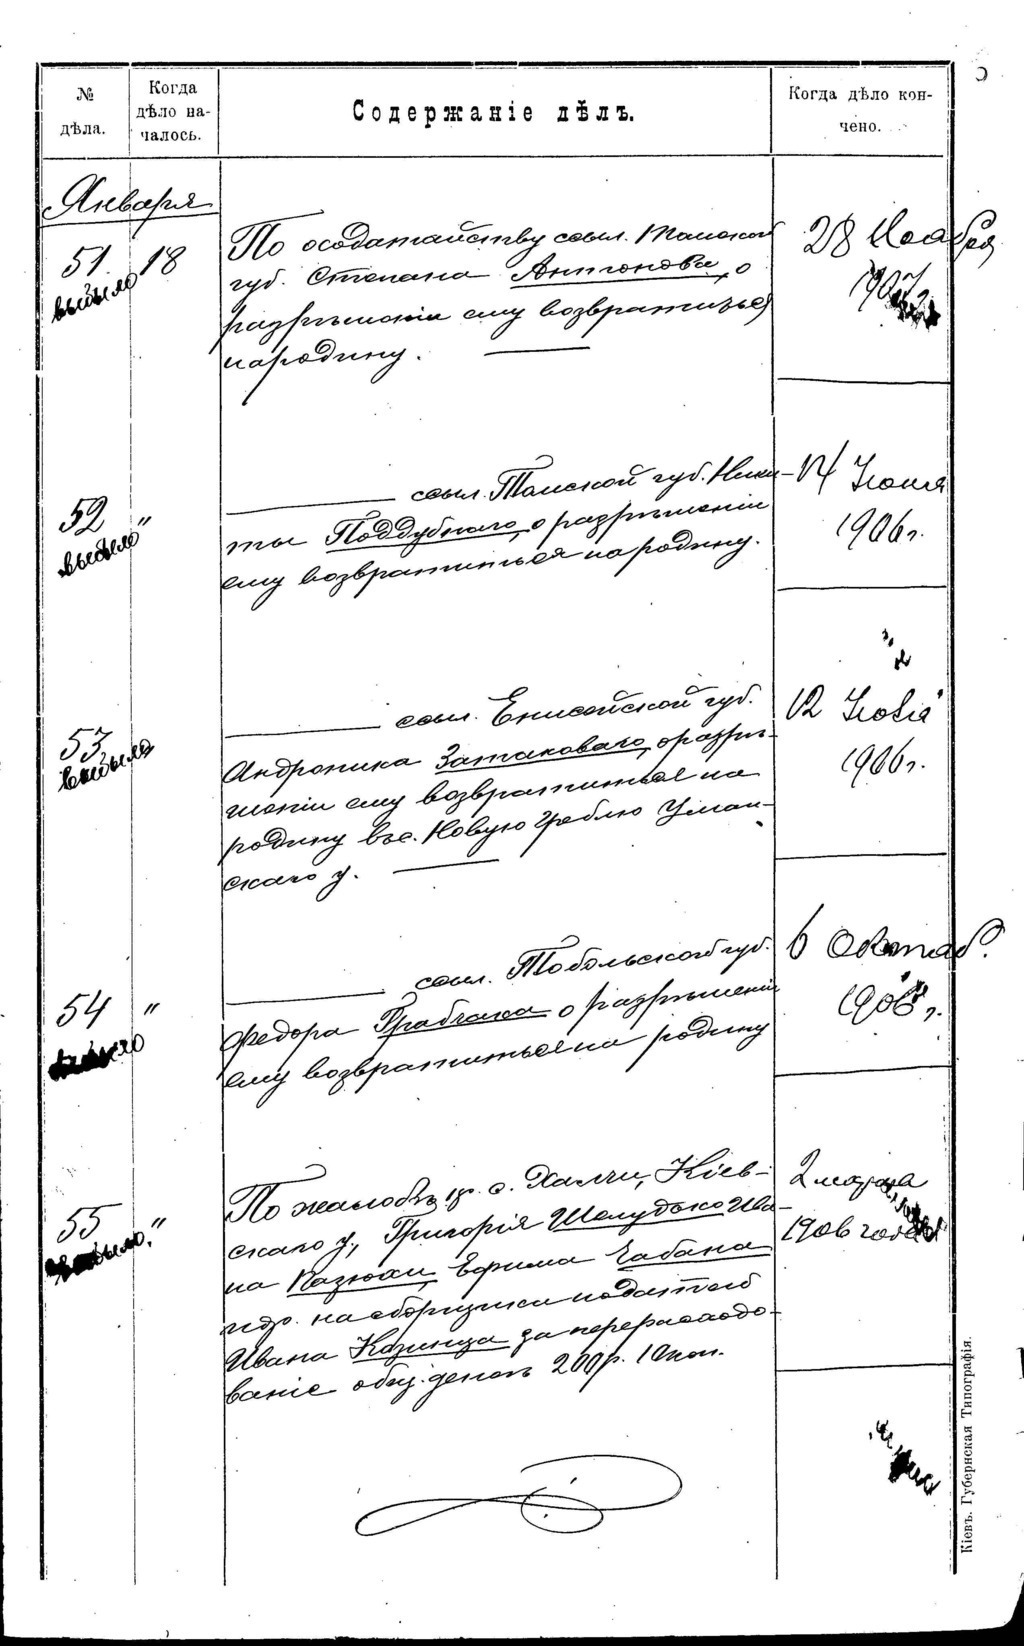 № дѣла.
Когда дѣло началось.
Содержаніе дѣлъ.
Когда дѣло кончено.
Января
51 18
выбыло
По ходатайству ссыл. Томской
губ. Степана Антонова, о
разрѣшеніи ему возвратиться
на родину.
28 Ноября
1907 г.
52 "
выбыло
ссыл. Томской губ. Ники-
ты Поддубнаго, о разрѣшеніи
ему возвратиться на родину.
14 Іюня
1906 г.
53 "
выбыло
ссыл. Енисейской губ.
Андроника Затаковаго, о разрѣ-
шеніи ему возвратиться на
родину въ с. Новую Греблю Уман-
скаго у.
12
1906 г.
54 "
выбыло
ссыл. Тобольской губ.
Федора Грабчака о разрѣшеніи
ему возвратиться на родину
6 Октяб.
1906 г.
55 "
выбыло
По жалобѣ кр. с. Халчи, Кіев-
скаго у., Григорія Шелудько Ива-
на Казюхи, Ефима Чабана
и др. на сборщика податей
Ивана Козинца за перерасходо-
ваніе общ. денегъ 200 р. 10 коп.
2 марта
1906 года
Кіевъ. Губернская Типографія.